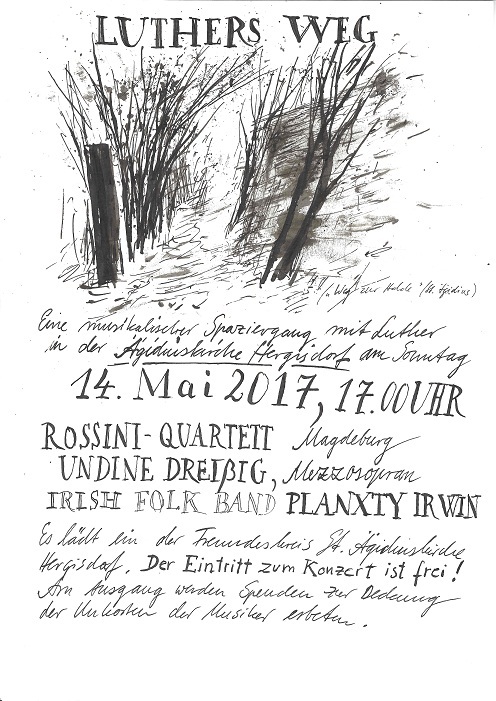 LUTHERS WEG
("Weg zur Halde" (St. Ägidius)
Eine musikalischer Spaziergang mit Luther
in der Ägidiuskirche Hergisdorf am Sonntag
14. Mai 2017, 17.00 UHR
ROSSINI-QUARTETT Magdeburg
UNDINE DREIßIG, Mezzosopran
IRISH FOLK BAND PLANXTY IRWIN
Es lädt ein der Freundeskreis St. Ägidiuskirche
Hergisdorf. Der Eintritt zum Konzert ist frei!
Am Ausgang werden Spenden zur Deckung
der Unkosten der Musiker erbeten.